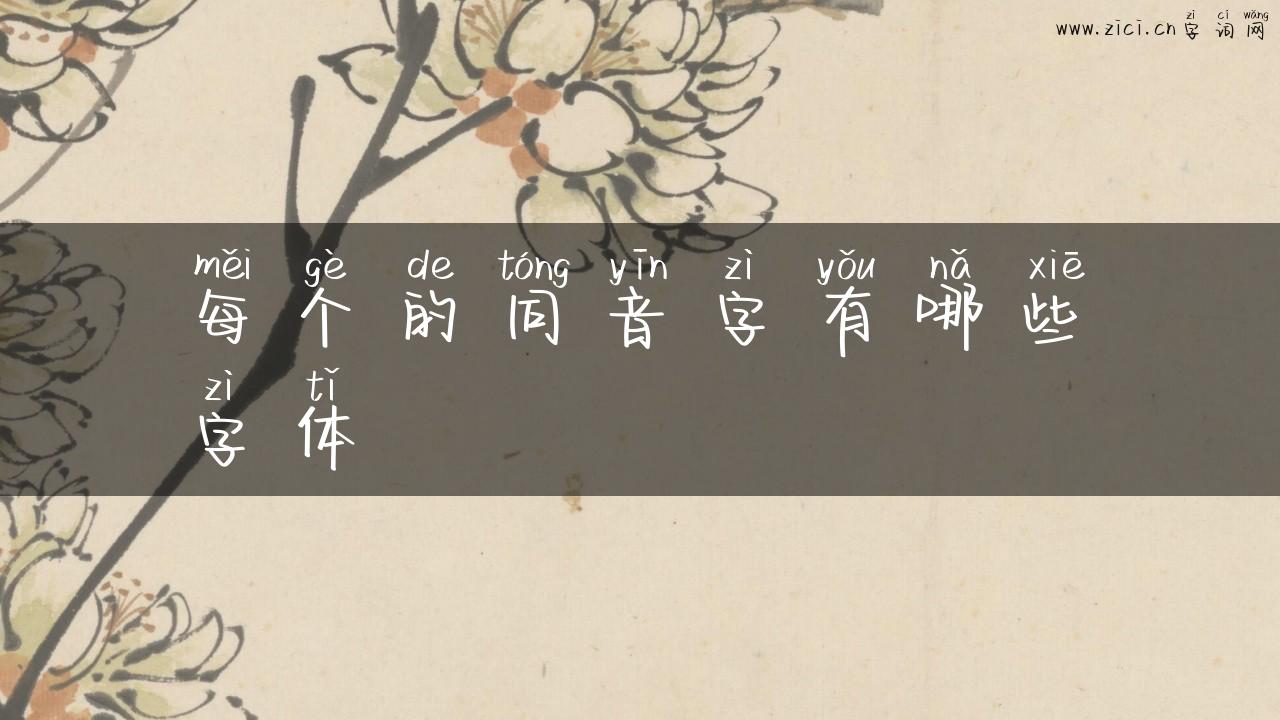 zì cí wǎng
www.zici.cn 字词网
měi gè de tóng yīn zì yǒu nǎ xiē
每个的同音字有哪些
zì tǐ
字体